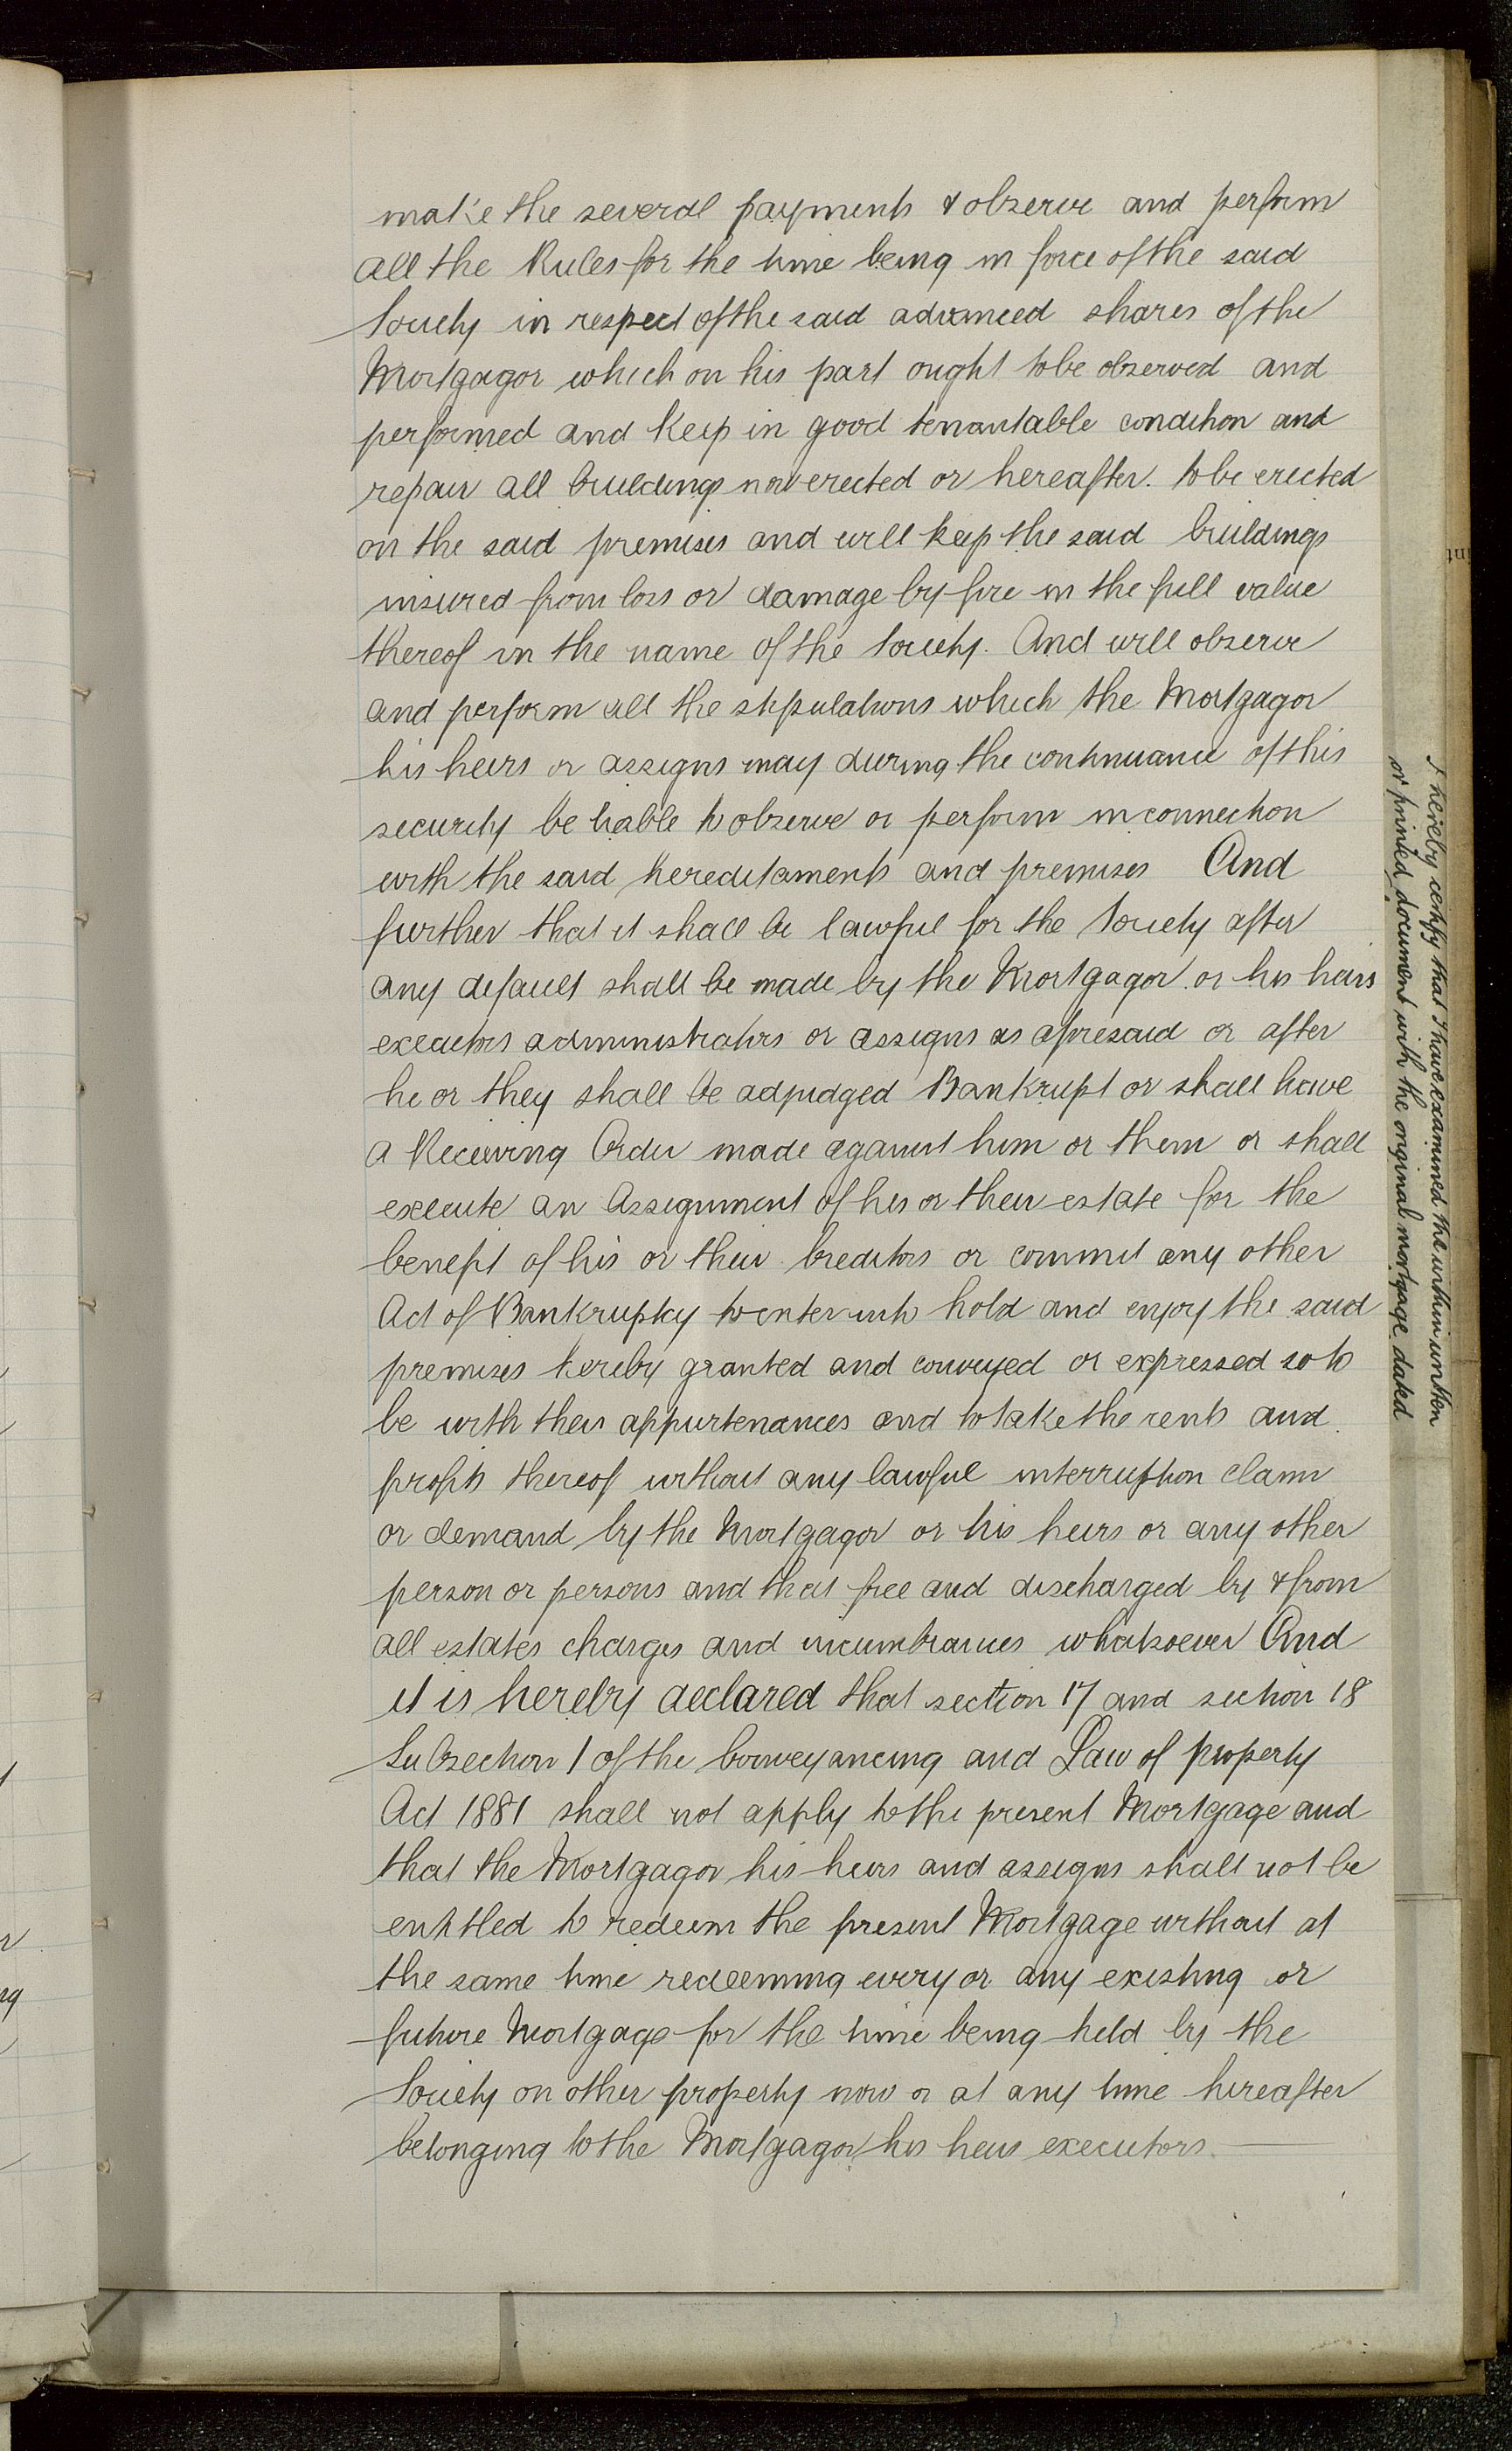 make the several payments & observe and perform
all the Rules for the time being in force of the said
Society in respect of the said advanced shares of the
Mortgagor which on his part ought to be observed and
performed and keep in good tenantable condition and
repair all buildings now erected or hereafter. to be erected
on the said premises and will keep the said buildings
insured from loss or damage by fire in the full value
thereof in the name of the Society. And will observe
and perform all the stipulations which the Mortgagor
his heirs or assigns may during the continuance of this
security be liable to observe or perform in connection
with the said hereditaments and premises And
further that it shall be lawful for the Society after
any default shall be made by the Mortgagor or his heirs
executors administrators or assigns as aforesaid or after
he or they shall be adjudged Bankrupt or shall have
a Receiving Order made against him or them or shall
execute an Assignment of his or their estate for the
benefit of his or their Creditors or commit any other
Act of Bankruptcy to enter into hold and enjoy the said
premises hereby granted and conveyed or expressed so to
be with their appurtenances and to take the rents and
profits thereof without any lawful interruption claim
or demand by the Mortgagor or his heirs or any other
person or persons and that free and discharged by & from
all estates charges and incumbrances whatsoever And
it is hereby declared that section 17 and section 18
Subsection 1 of the Conveyancing and Law of property
Act 1881 shall not apply to the present Mortgage and
that the Mortgagor his heirs and assigns shall not be
entitled to redeem the present Mortgage without at
the same time redeeming every or any existing or
future Mortgage for the time being held by the
Society on other property now or at any time hereafter
belonging to the Mortgagor his heirs executors
I hereby certify that I have examined the within written
or printed document with the original mortgage dated